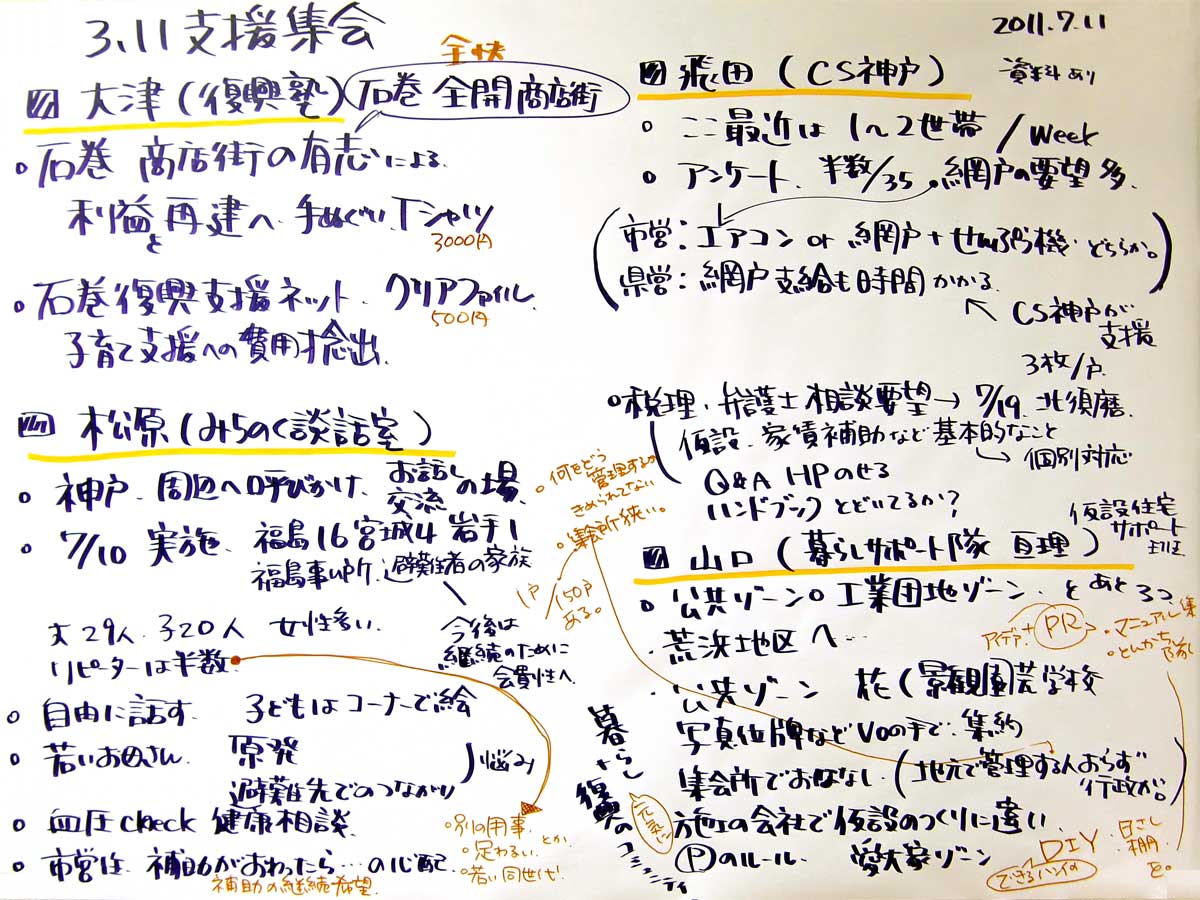 3.11支援集会
2011.7.11
大津(復興塾)
全快
石巻 全開商店街
石巻 商店街の有志による
利益を再建へ 手ぬぐい、Tシャツ
3000円
石巻復興支援ネット. クリアファイル.
500円
子育て支援への費用捻出.
松原(みちのく談話室)
神戸. 周辺へ呼びかけ、お話しの場.
交流
7/10 実施、福島16 宮城4 岩手1
福島事ム所、避難者の家族
大29人. 子20人 女性多い.
リピーターは半数.
今後は
継続のために
会費性へ.
自由に話す. 子どもはコーナーで絵
若いお母さん. 原発
避難先でのつながり
悩み
血圧check 健康相談.
市営住. 補助がおわったら…の心配.
補助の継続希望.
別の用事. とか.
足わるい.
若い同世代.
飛田(CS神戸)
資料あり
ここ最近は 1〜2世帯/week
アンケート. 半数/35 網戸の要望多.
(市営:エアコン or 網戸+せんぷう機. どちらか。
県営:網戸支給も時間かかる.)
← CS神戸が
支援
3枚/戸.
税理・弁護士相談要望→ 7/19. 北須磨.
仮設. 家賃補助など基本的なこと
→ 個別対応
Q&A HPのせる
ハンドブックとどいてるか?
何をどう
管理するか
きめられてない
集会所狭い。
1戸/150戸
ある。
山口(暮らしサポート隊 亘理)
仮設住宅
サポート
公共ゾーン。工業団地ゾーン. とあと3つ
荒浜地区へ…
アイデア+PR
マニュアル集
とんかち隊
公共ゾーン 花(景観園芸学校
写真位牌などVoの手で. 集約
集会所でおはなし.(地元で管理する人おらず
行政が。)
施工の会社で仮設のつくりに違い.
Ⓟのルール. 愛犬家ゾーン
暮らし
復興のコミュニティ
元気に
DIY
できるハンイの
日さし
棚
を。